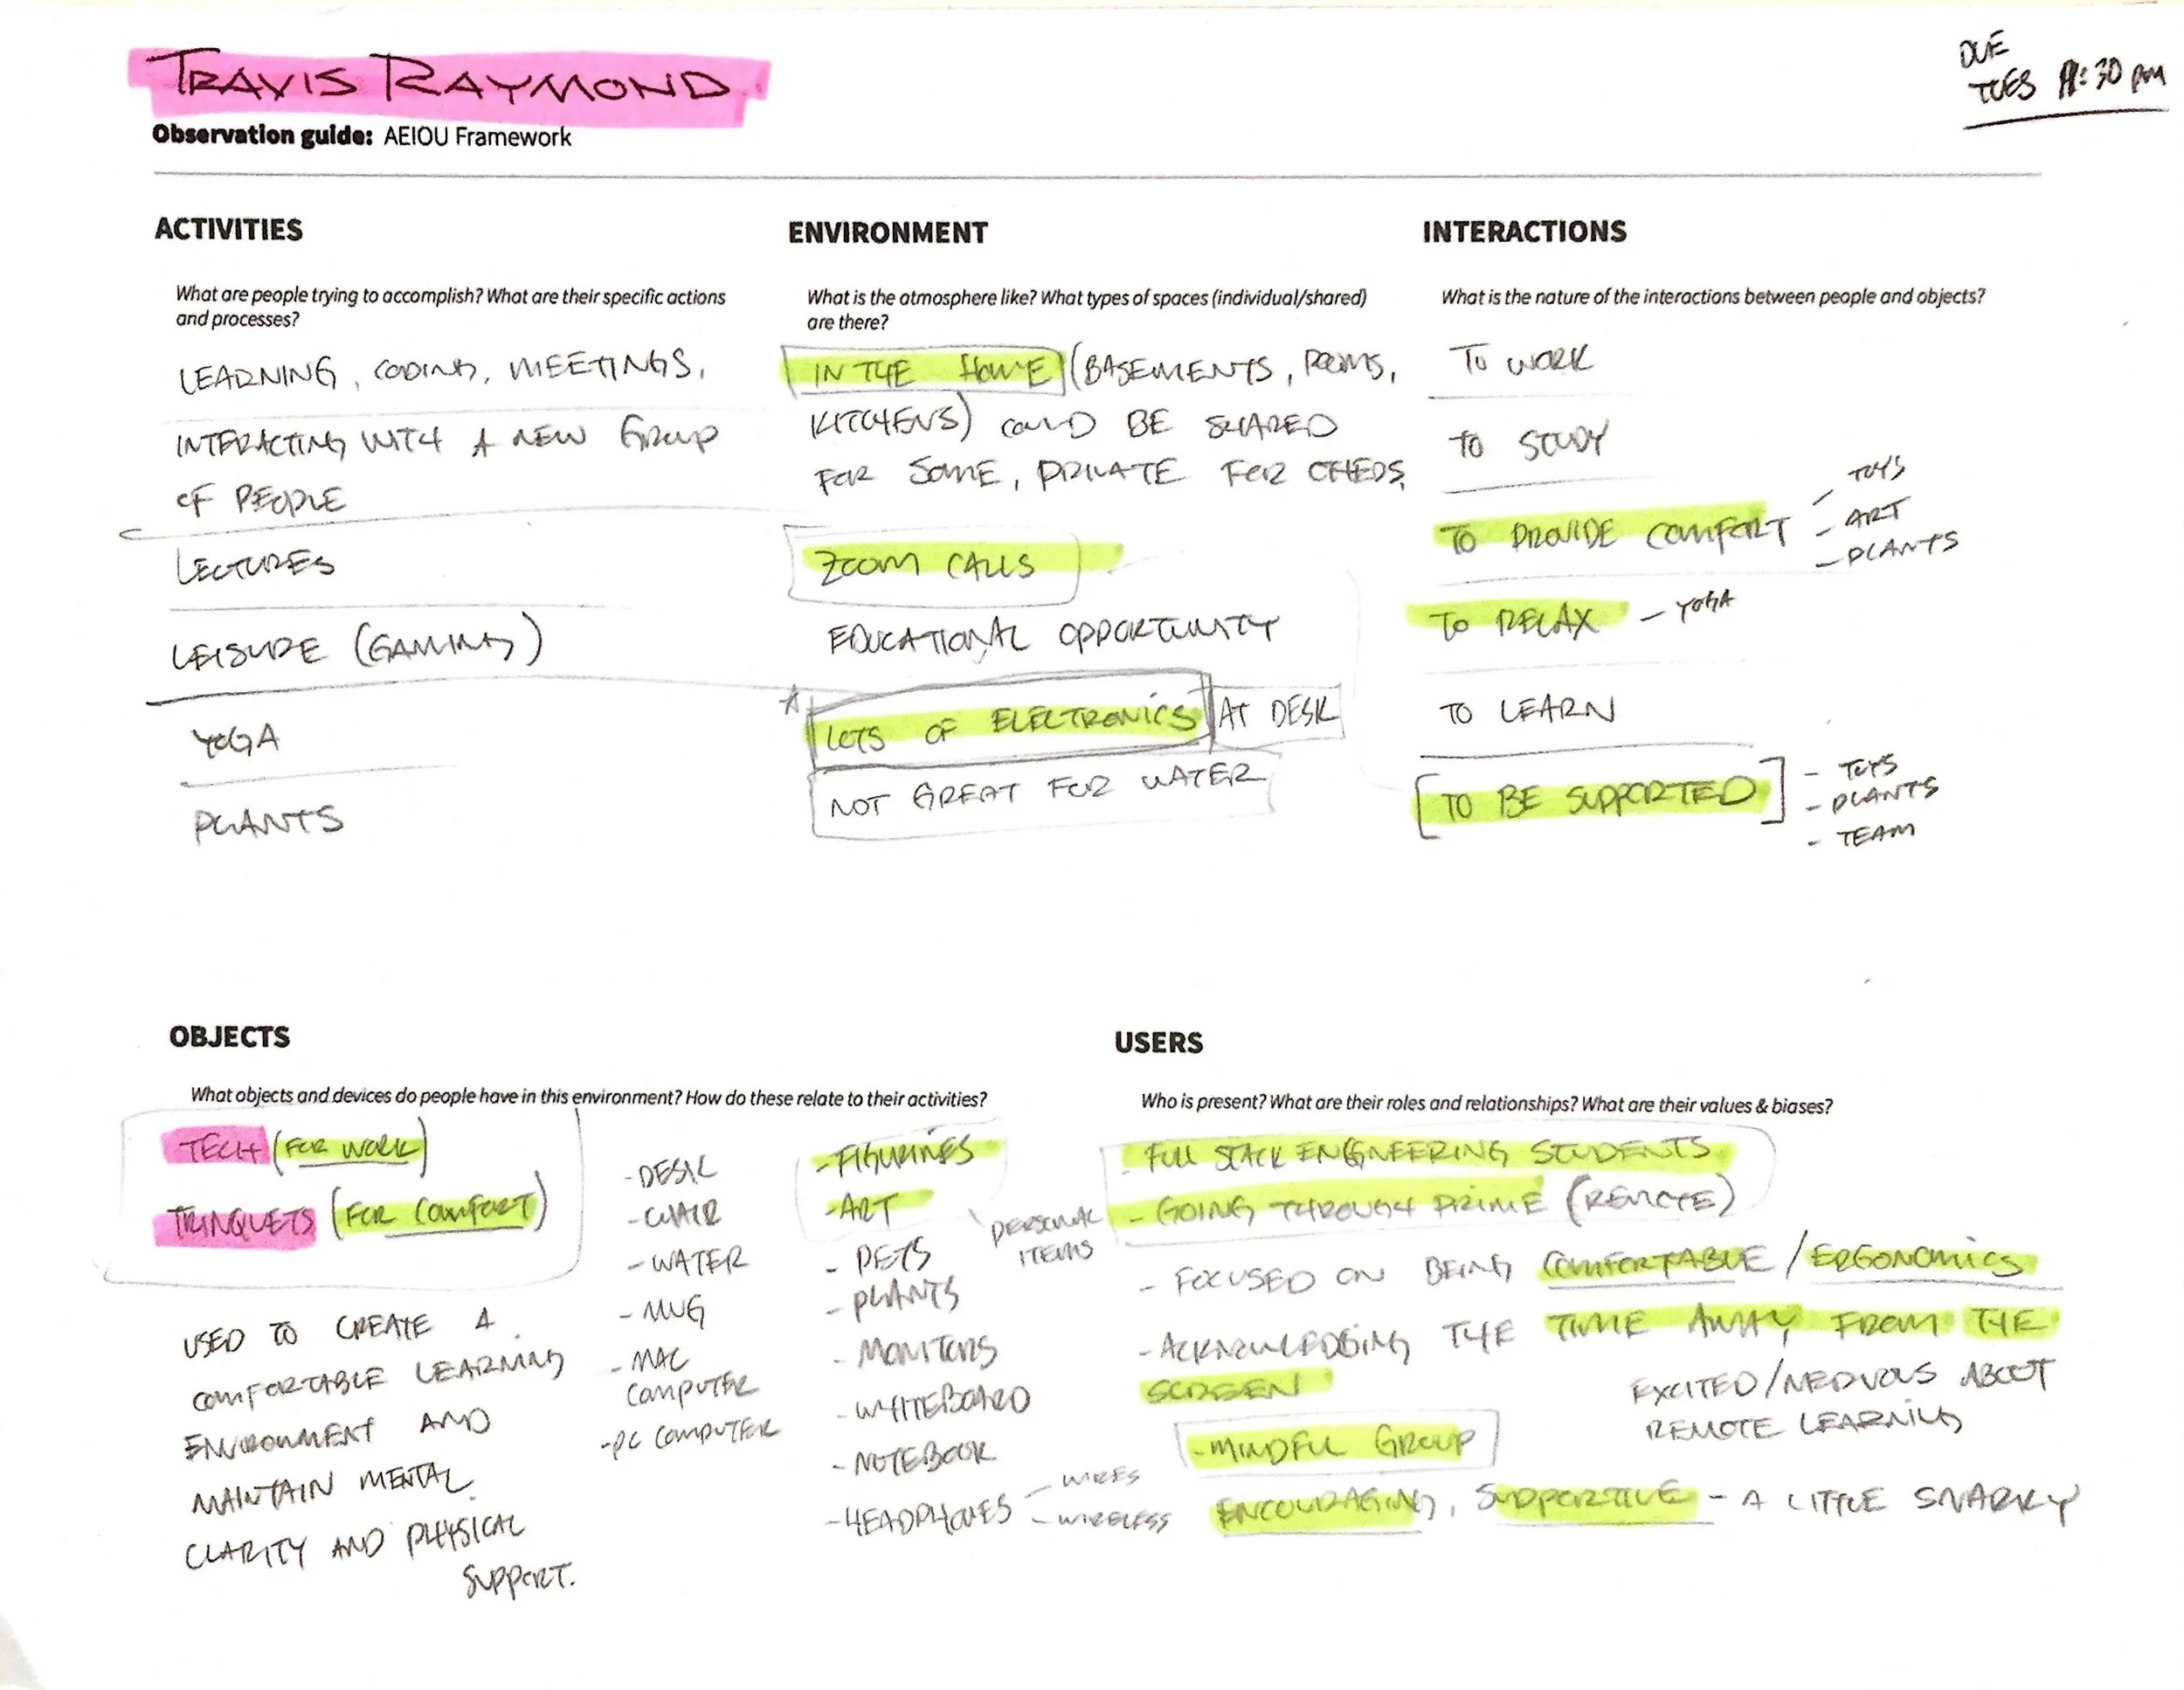 TRAVIS RAYMOND
DUE
TUES :30 PM
Observation guide: AEIOU Framework
ACTIVITIES
What are people trying to accomplish? What are their specific actions
and processes?
LEARNING, CODING, MEETINGS,
INTERACTING WITH A NEW GROUP
OF PEOPLE
LECTURES
LEISURE (GAMING)
YOGA
PLANTS
ENVIRONMENT
What is the atmosphere like? What types of spaces (individual/shared)
are there?
IN THE HOME (BASEMENTS, ROOMS,
KITCHENS) COULD BE SHARED
FOR SOME, PRIVATE FOR OTHERS.
ZOOM CALLS
EDUCATIONAL OPPORTUNITY
LOTS OF ELECTRONICS AT DESK
NOT GREAT FOR WATER
INTERACTIONS
What is the nature of the interactions between people and objects?
TO WORK
TO STUDY
TO PROVIDE COMFORT
- TOYS
- ART
- PLANTS
TO RELAX - YOGA
TO LEARN
[TO BE SUPPORTED]
- TOYS
- PLANTS
- TEAM
OBJECTS
What objects and devices do people have in this environment? How do these relate to their activities?
TECH (FOR WORK)
TRINQUETS (FOR COMFORT)
USED TO CREATE A
COMFORTABLE LEARNING
ENVIRONMENT AND
MAINTAIN MENTAL
CLARITY AND PHYSICAL
SUPPORT.
- DESK
- CHAIR
- WATER
- MUG
- MAC
COMPUTER
- PC COMPUTER
- FIGURINES
- ART
PERSONAL
ITEMS
- PETS
- PLANTS
- MONITORS
- WHITEBOARD
- NOTEBOOK
- HEADPHONES
- WIRES
- WIRELESS
USERS
Who is present? What are their roles and relationships? What are their values & biases?
- FULL STACK ENGINEERING STUDENTS
- GOING THROUGH PRIME (REMOTE)
- FOCUSED ON BEING COMFORTABLE / ERGONOMICS
- ACKNOWLEDGING THE TIME AWAY FROM THE
SCREEN
EXCITED/NERVOUS ABOUT
REMOTE LEARNING
- MINDFUL GROUP
ENCOURAGING, SUPPORTIVE - A LITTLE SNARKY